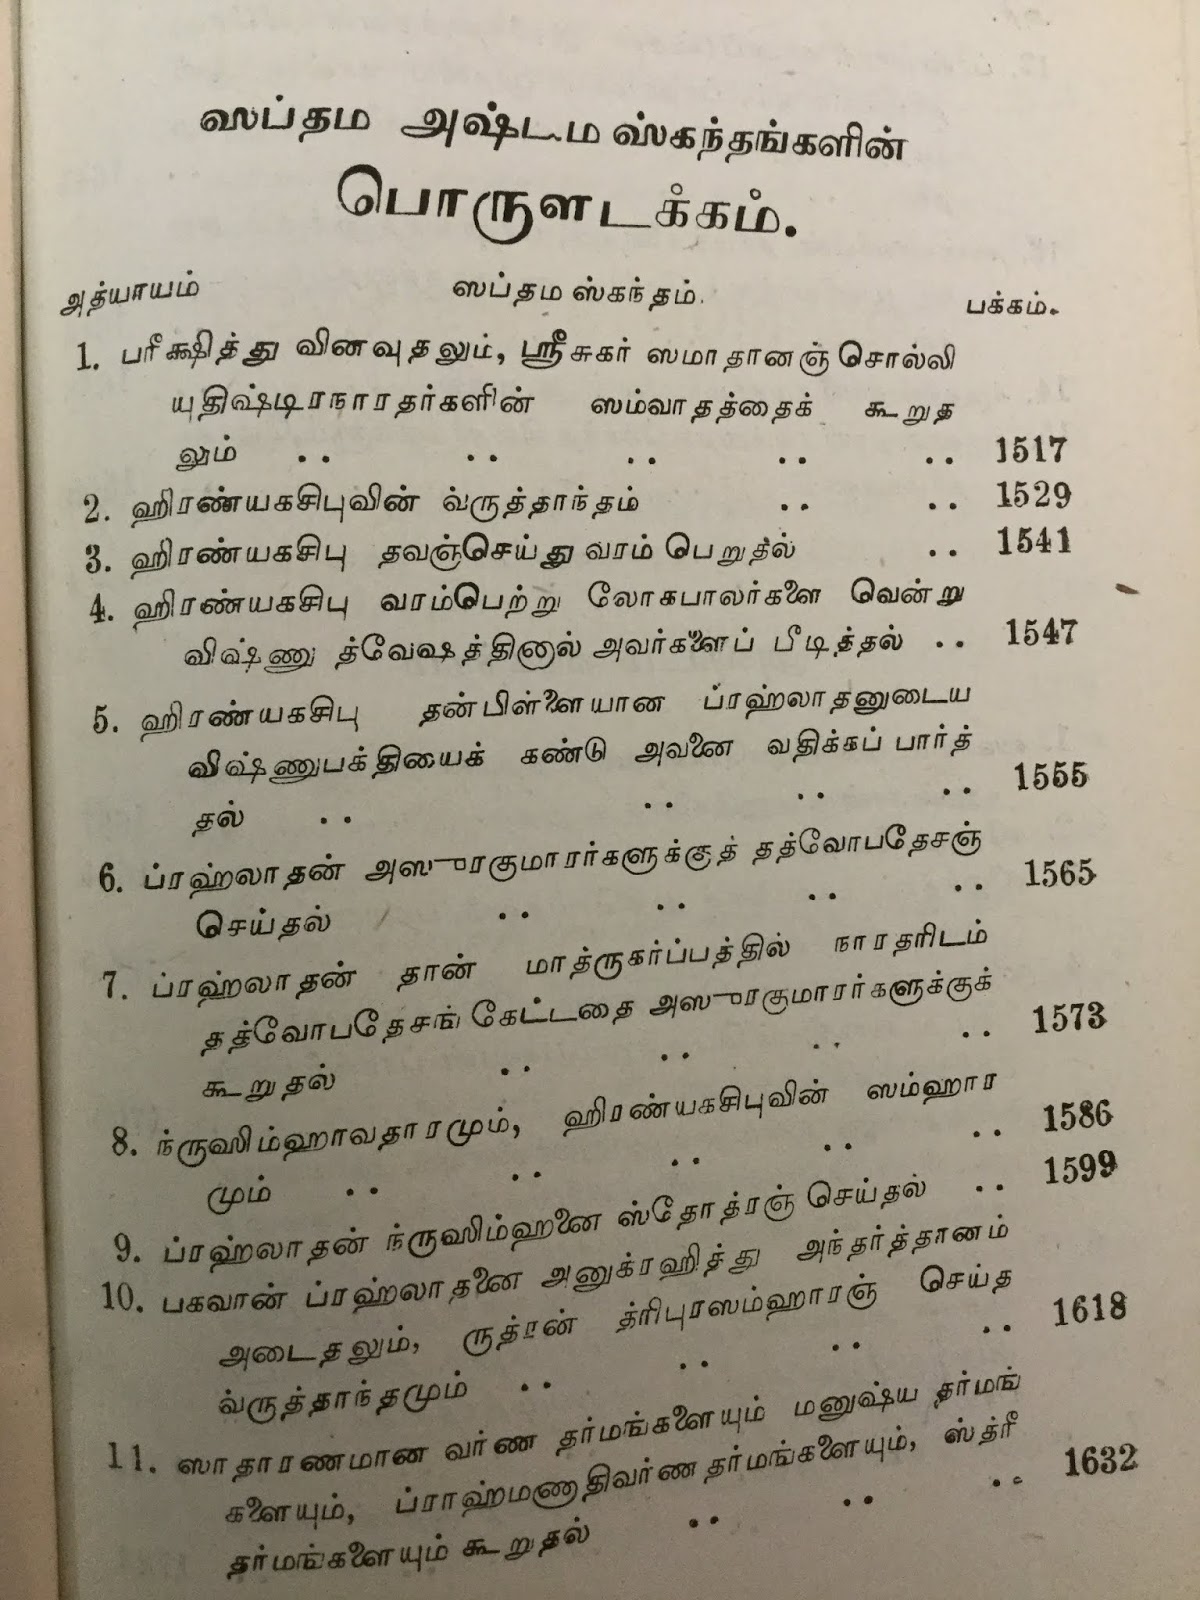 ஸப்தம அஷ்டம ஸ்கந்தங்களின்
பொருளடக்கம்.
அத்யாயம் ஸப்தம ஸ்கந்தம். பக்கம்.
1. பரீக்ஷித்து வினவுதலும், ஸ்ரீசுகர் ஸமாதானஞ் சொல்லி
யுதிஷ்டிரநாரதர்களின் ஸம்வாதத்தைக் கூறுத
லும் .. .. .. .. .. 1517
2. ஹிரண்யகசிபுவின் வ்ருத்தாந்தம் .. .. 1529
3. ஹிரண்யகசிபு தவஞ்செய்து வரம் பெறுதல் .. 1541
4. ஹிரண்யகசிபு வரம்பெற்று லோகபாலர்களை வென்று
விஷ்ணு த்வேஷத்தினால் அவர்களைப் பீடித்தல் .. 1547
5. ஹிரண்யகசிபு தன்பிள்ளையான ப்ரஹ்லாதனுடைய
விஷ்ணுபக்தியைக் கண்டு அவனை வதிக்கப் பார்த்
தல் .. .. .. .. 1555
6. ப்ரஹ்லாதன் அஸுரகுமாரர்களுக்குத் தத்வோபதேசஞ்
செய்தல் .. .. .. .. 1565
7. ப்ரஹ்லாதன் தான் மாத்ருகர்ப்பத்தில் நாரதரிடம்
தத்வோபதேசங் கேட்டதை அஸுரகுமாரர்களுக்குக்
கூறுதல் .. .. .. .. 1573
8. ந்ருஸிம்ஹாவதாரமும், ஹிரண்யகசிபுவின் ஸம்ஹார
மும் .. .. .. .. .. 1586
9. ப்ரஹ்லாதன் ந்ருஸிம்ஹனை ஸ்தோத்ரஞ் செய்தல் .. 1599
10. பகவான் ப்ரஹ்லாதனை அனுக்ரஹித்து அந்தர்த்தானம்
அடைதலும், ருத்ரன் த்ரிபுரஸம்ஹாரஞ் செய்த
வ்ருத்தாந்தமும் .. .. .. .. 1618
11. ஸாதாரணமான வர்ண தர்மங்களையும் மனுஷ்ய தர்மங்
களையும், ப்ராஹ்மணாதிவர்ண தர்மங்களையும், ஸ்த்ரீ
தர்மங்களையும் கூறுதல் .. .. .. 1632